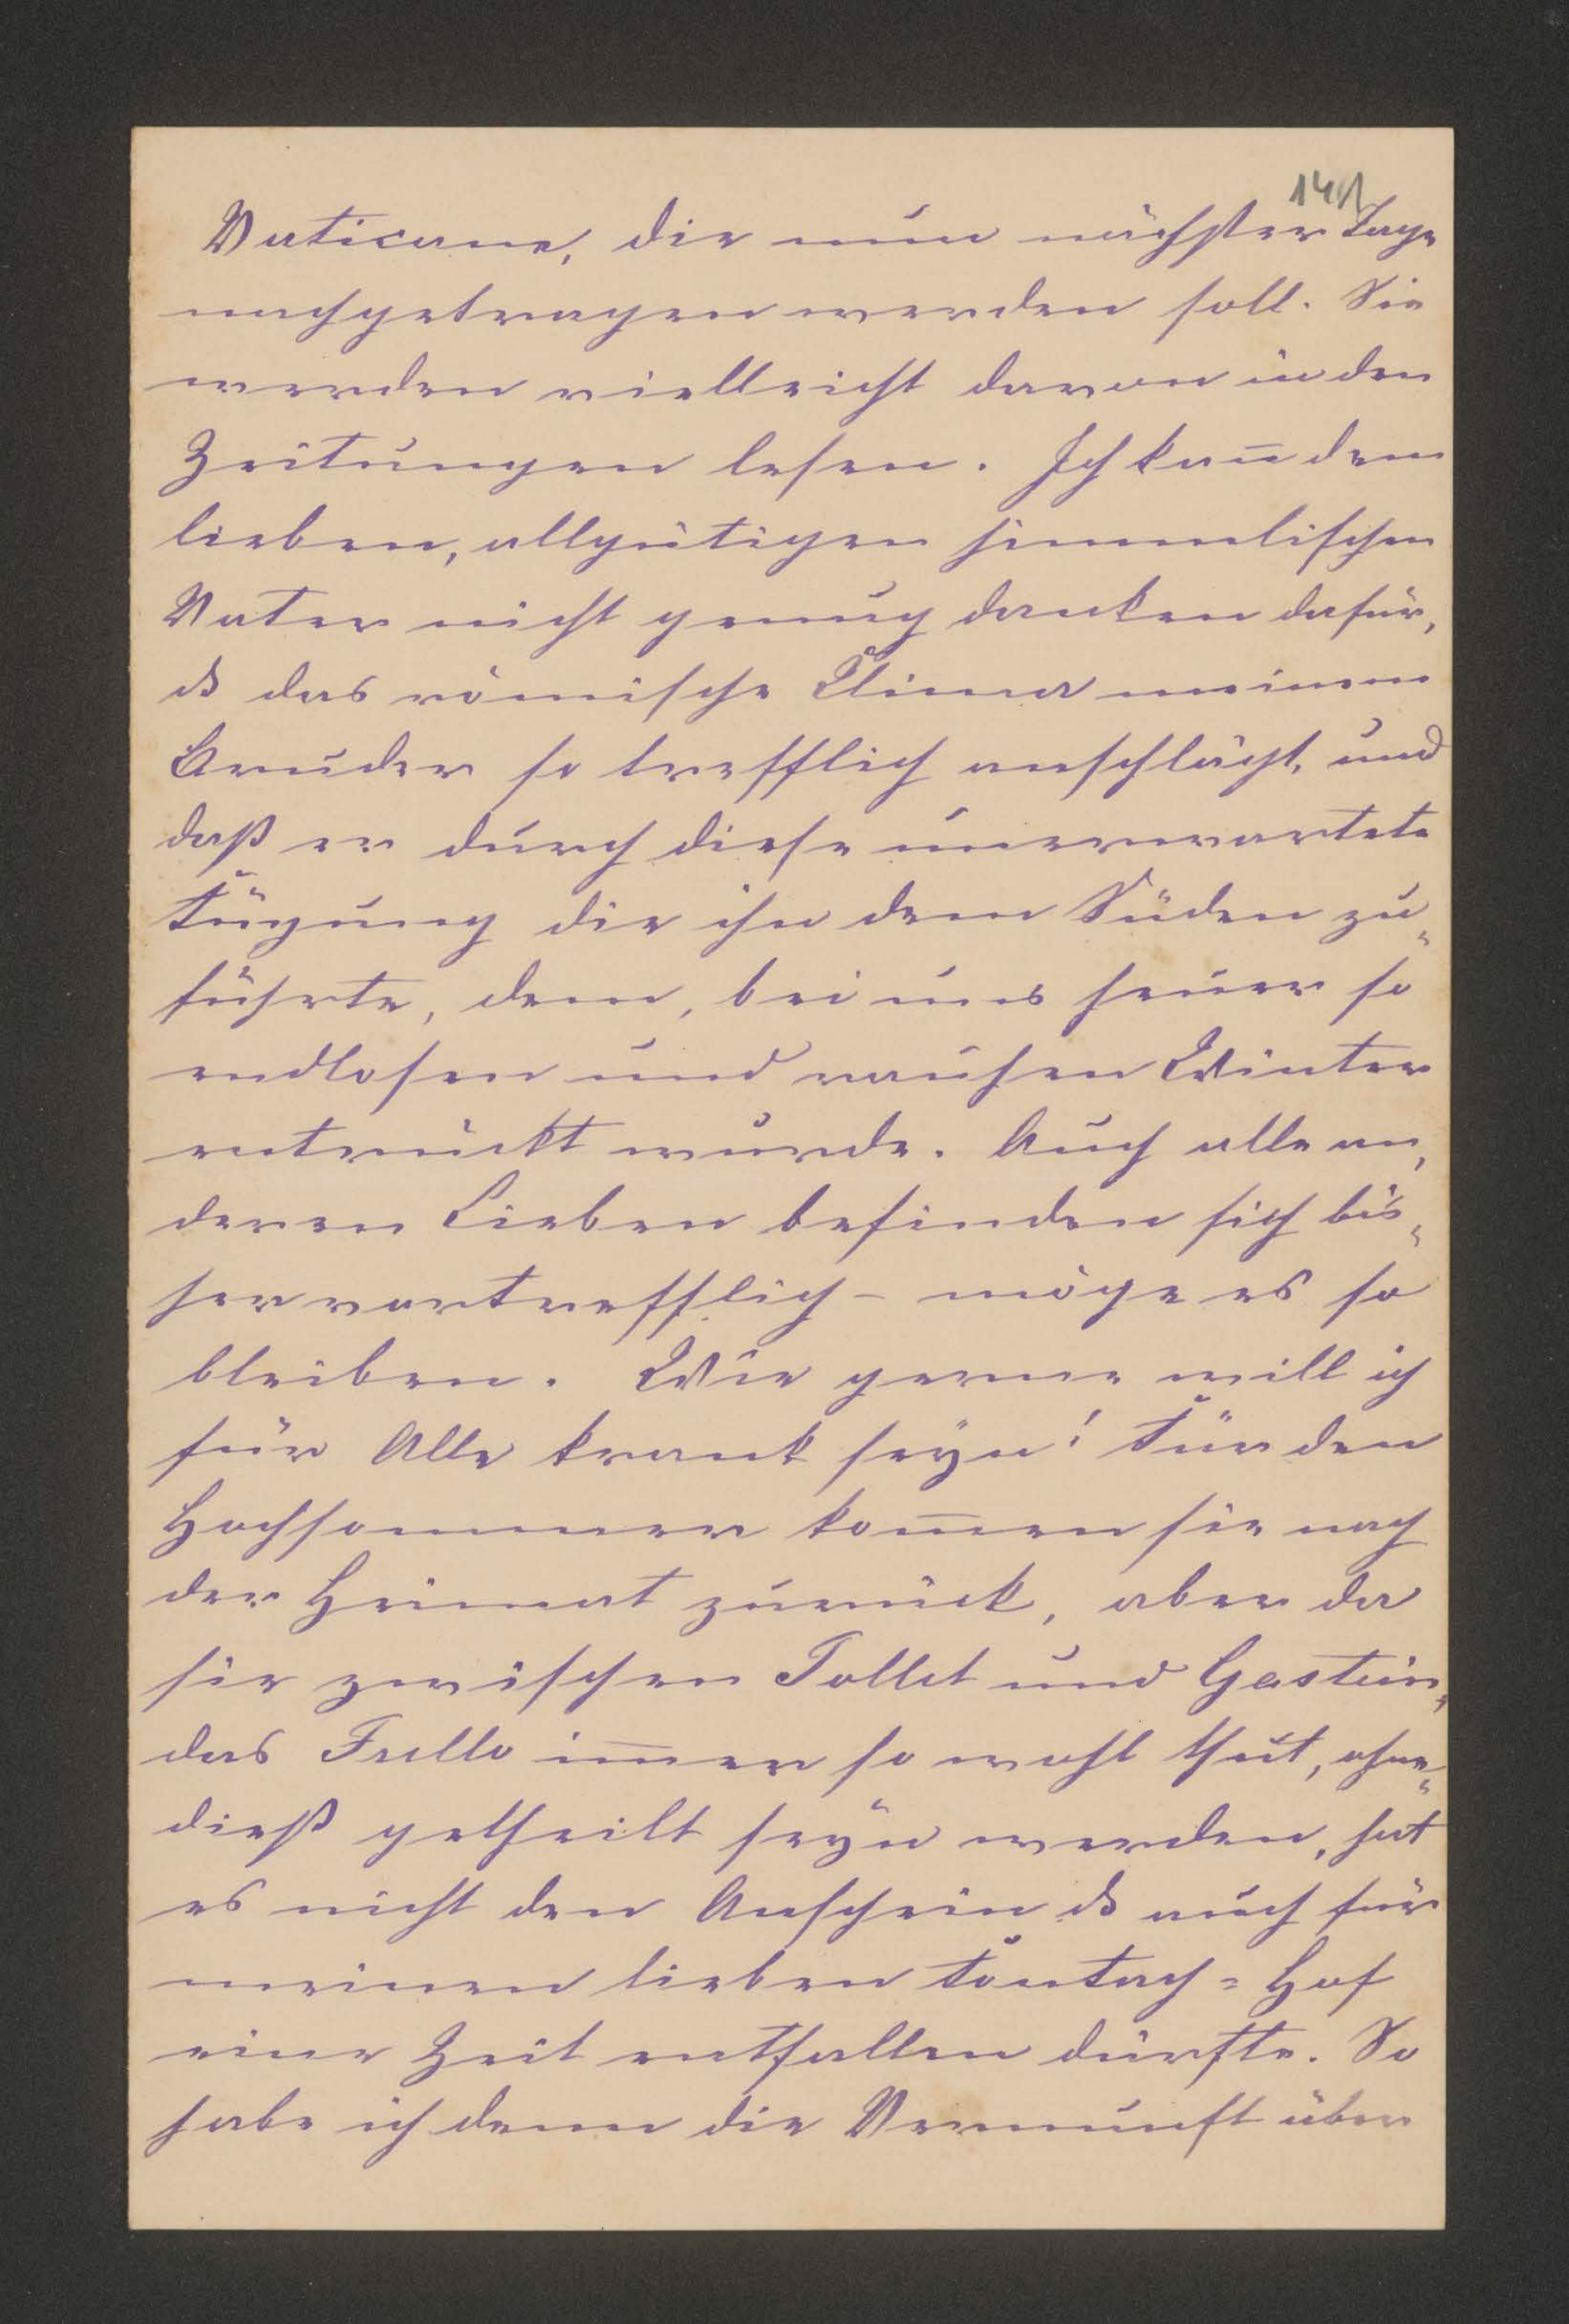 141
Vaticane, die nun nächster Tage
nachgetragen werden soll. Sie
werden vielleicht davon in den
Zeitungen lesen. Ich kan̅ dem
lieben, allgütigen himmlischen
Vater nicht genug danken dafür,
ds das römische Clima meinem
Bruder so trefflich anschlägt, und
daß er durch diese unerwartete
Fügung die ihn dem Süden zu„
führte, dem, bei uns heuer so
endlosen und rauhen Winter
entrückt wurde. Auch alle an„
deren Lieben befinden sich bis„
her vortrefflich – möge es so
bleiben. Wie gerne will ich
für Alle krank seyn! Für den
Hochsommer kom̅en sie nach
der Heimat zurück, aber da
sie zwischen Tollet und Gastein,
das Fullo im̅er so wohl thut, ohne„
dieß getheilt seyn werden, hat
es nicht den Anschein ds auch für
meinen lieben Hof
eine Zeit entfallen dürfte. So
habe ich denn die Vernunft über